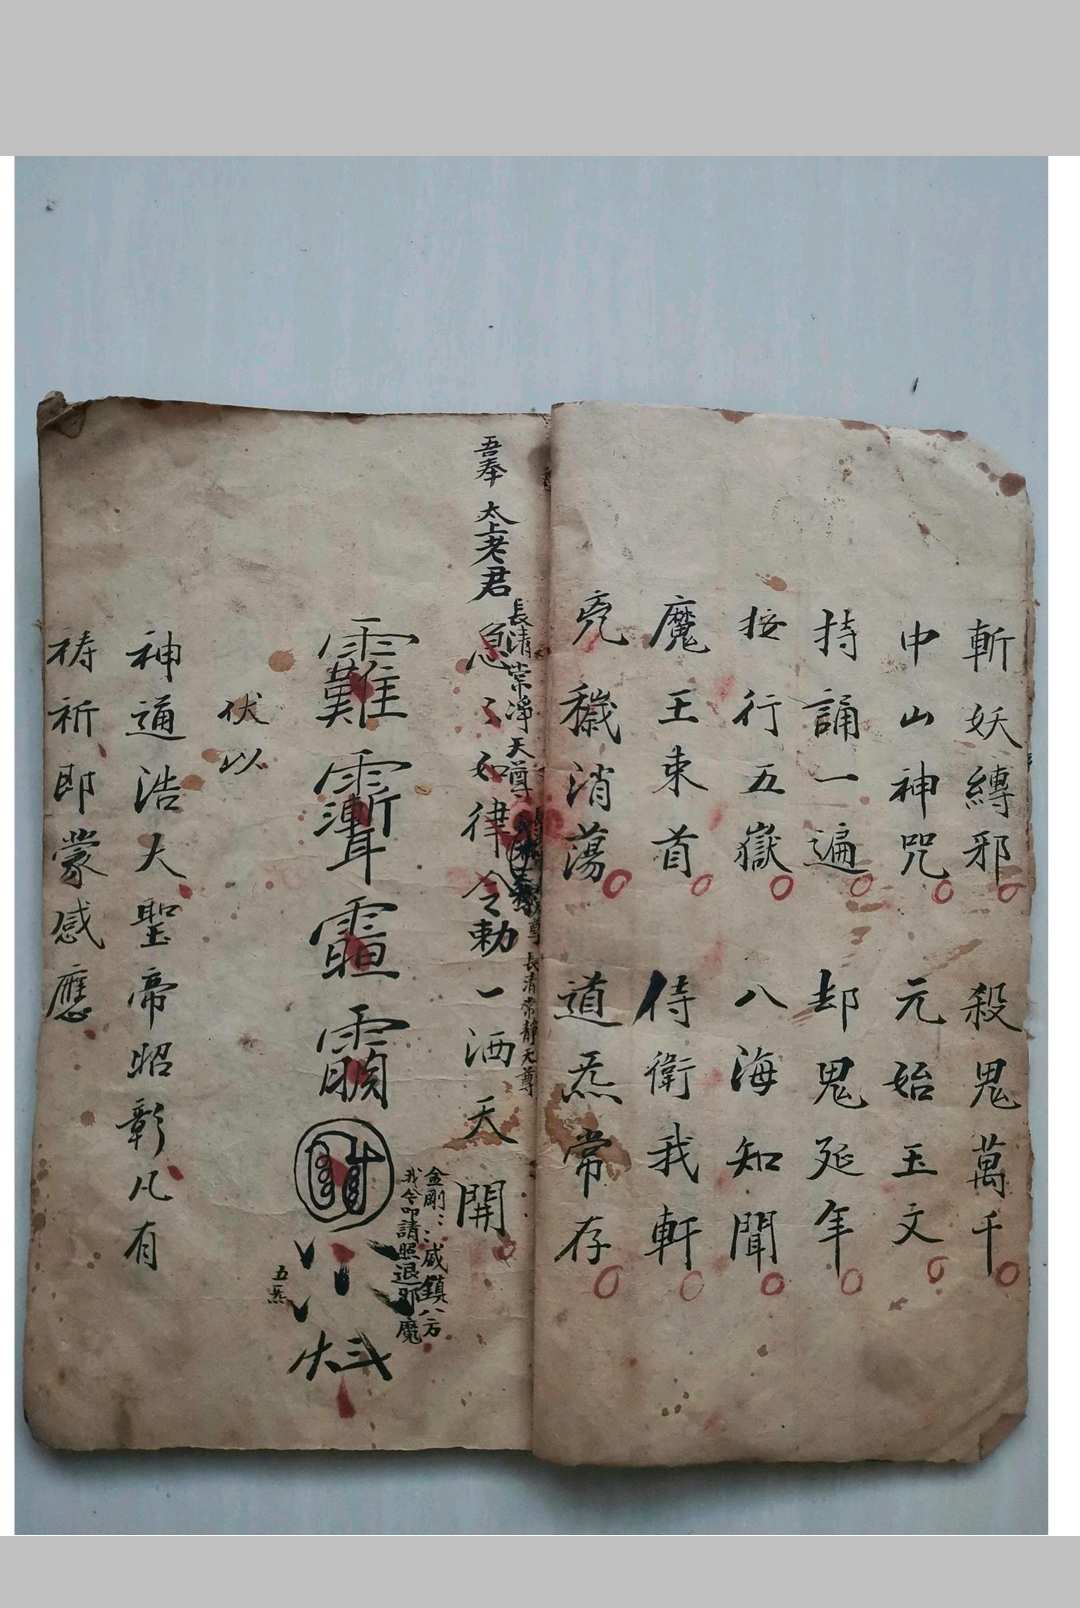 斬妖縛邪 殺鬼萬千
中山神咒 元始玉文
持誦一遍 却鬼延年
按行五嶽 八海知聞
魔王束首 侍衛我軒
穢消蕩 道炁常存
吾奉 太上老君 急〻如律令勅一洒天開
長清常净天尊
長清常靜天尊
金剛〻〻威鎮八方
我今叩請照退邪魔
五炁
伏以
神通浩大聖帝昭彰凡有
祷祈即蒙感應